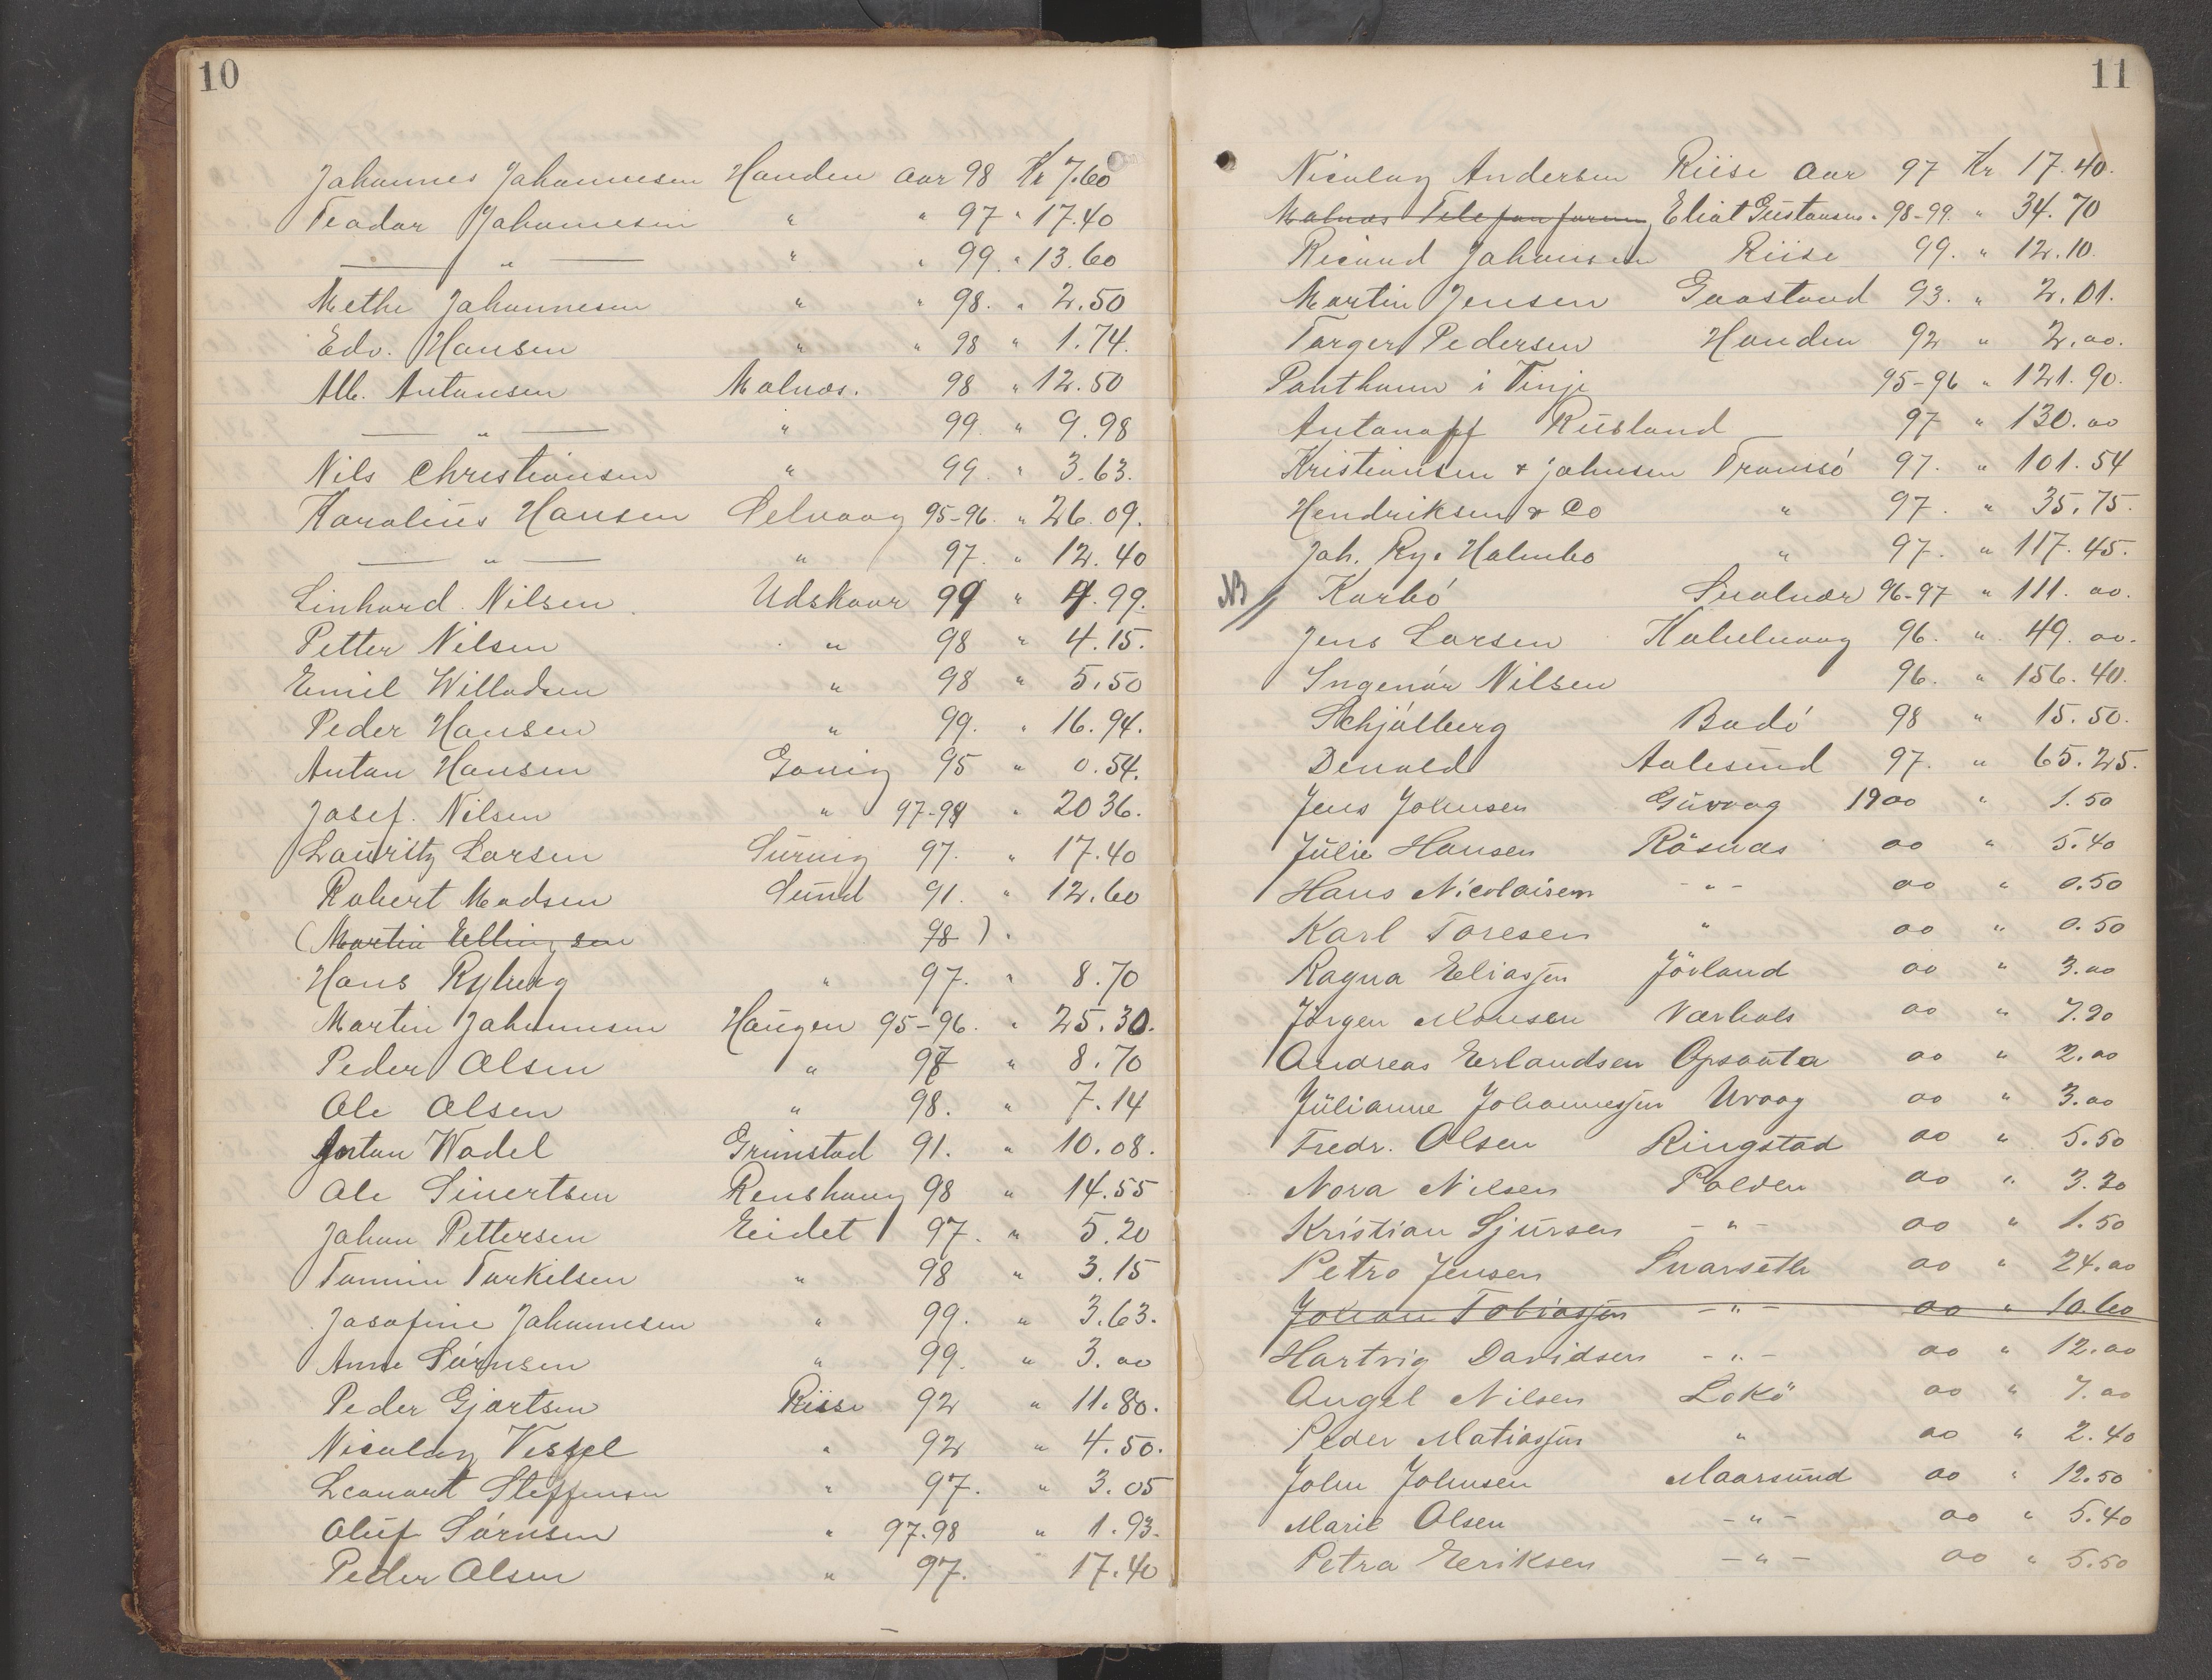 10
Johannes Johannesen Handen Aar 98 Kr 7.60
Teodor Johannesen " " 97 " 17.40
— " — " " 99. " 13.60
Methe Johannesen " " 98. " 2.50
Edv. Hansen " " 98 " 1.74.
Alb. Antonsen Malnæs. 98 " 12.50
— " — " 99. " 9.98
Nils Christiansen " 99. " 3.63.
Karolius Hansen Selvaag 95-96. " 26.09.
— " — " 97. " 12.40
Linhard Nilsen. Udskaar 99 " 4.99.
Petter Nilsen " 98 " 4.15.
Emil Willadsen " 98 " 5.50
Peder Hansen " 99. " 16.94.
Anton Hansen 95 " 0.54.
Josef. Nilsen " 97-99 " 20 36.
Lauritz Larsen 97. " 17.40
Robert Madsen Sund 91. " 12.60
(Martin Ellingsen 98).
Hans Ryberg " 97. " 8.70
Martin Johannsen Haugen 95-96. " 25.30.
Peder Olsen " 97 " 8.70
Ole Olsen " 98. " 7.14
Anton Wadel Grimstad 91. " 10.08.
Ole Sivertsen Renshaug 98 " 14.55
Johan Pettersen Eidet 97. " 5.20
Tomin Torkilsen " 98 " 3.15
Josofine Johannesen " 99. " 3.63.
Anne Sørnsen " 99. " 3.00
Peder Gjertsen Riise 92 " 11.80.
Nicolay Vessel " 92 " 4.50.
Leonart Steffensen " 97. " 3.05
Oluf Sørnsen " 97.98 " 1.93.
Peder Olsen " 97. 17.40
11
Nicolay Andersen Riise Aar 97 Kr 17.40.
Malnæs Eliot Gustavsen. 98-99. " 34.70
Ricard Johansen Riise 99. " 12.10.
Martin Jensen Gaastand 93. " 2.01.
Torger Pedersen Handen 92 " 2.00.
i Tinje 95-96 " 121.90.
Antonoff Rusland 97 " 130.00
Kristiansen & Johnsen Tromsö 97. " 101.54
Hendriksen & Co " 97. " 35.75.
Joh. Ry. Holmbo " 97. " 117.45.
NB Karbö Svolvær 96-97 " 111.00.
Jens Larsen Kabelvaag 96. " 49.00.
Ingenör Nilsen 96. " 156.40.
Schjölberg Bodö 98 " 15.50.
Devold Aalesund 97. " 65.25.
Jens Johnsen Guvaag 1900 " 1.50
Julie Hansen Rösnæs 00 " 5.40
Hans Nicolaisen - " - 00 " 0.50
Karl Toresen " 00 " 0.50
Ragna Eliassen Jövland 00 " 3.00
Jörgen Monsen Værhals 00 " 7.20
Andreas Erlandsen Opsaata 00 " 2.00
Julianne Johannessen Uvaag 00 " 3.00
Fredr. Olsen Ringstad 00 " 5.50
Nora Nilsen Polden 00 " 3.20
Kristian Sjursen - " - 00 " 1.50
Petro Jensen Snarseth 00 " 24.00
Johan Tobiassen - " - 00 " 10.60
Hartvig Davidsen - " - 00 " 12.00
Angel Nilsen Lokö 00 " 7.00
Peder Matiassen " 00 " 2.40
John Johnsen Maarsund 00 " 12.50
Marie Olsen - " - 00 " 5.40
Petra Eriksen - " - 00 " 5.50